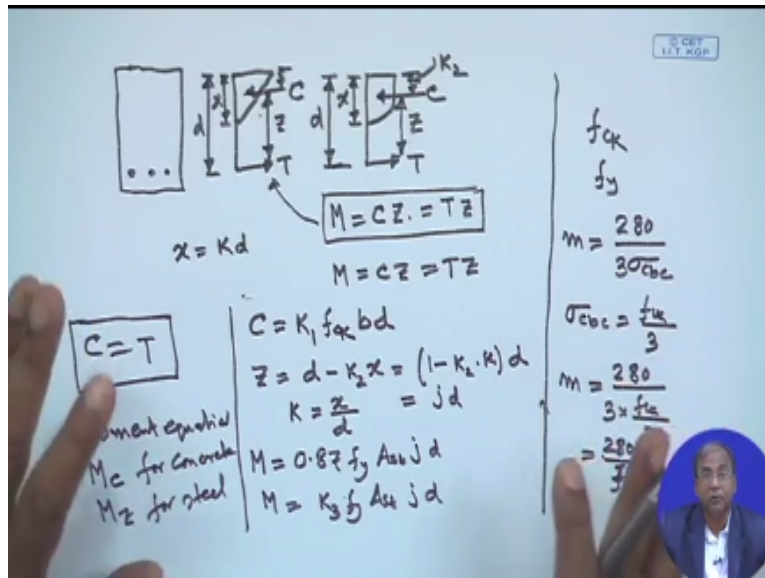 © CET
I.I.T. KGP
K₂
x
C
d
Z
T
x
C
d
Z
T
M = CZ. = TZ
x = Kd
M = CZ = TZ
C = T
Moment equation
Mc for concrete
Mz for steel
C = K₁ fck bd
Z = d - K₂x = (1 - K₂.K) d
K = x/d = jd
M = 0.87 fy Ast jd
M = K₃ fy Ast jd
fck
fy
m = 280/3σcbc
σcbc = fck/3
m = 280/3 × fck
= 280